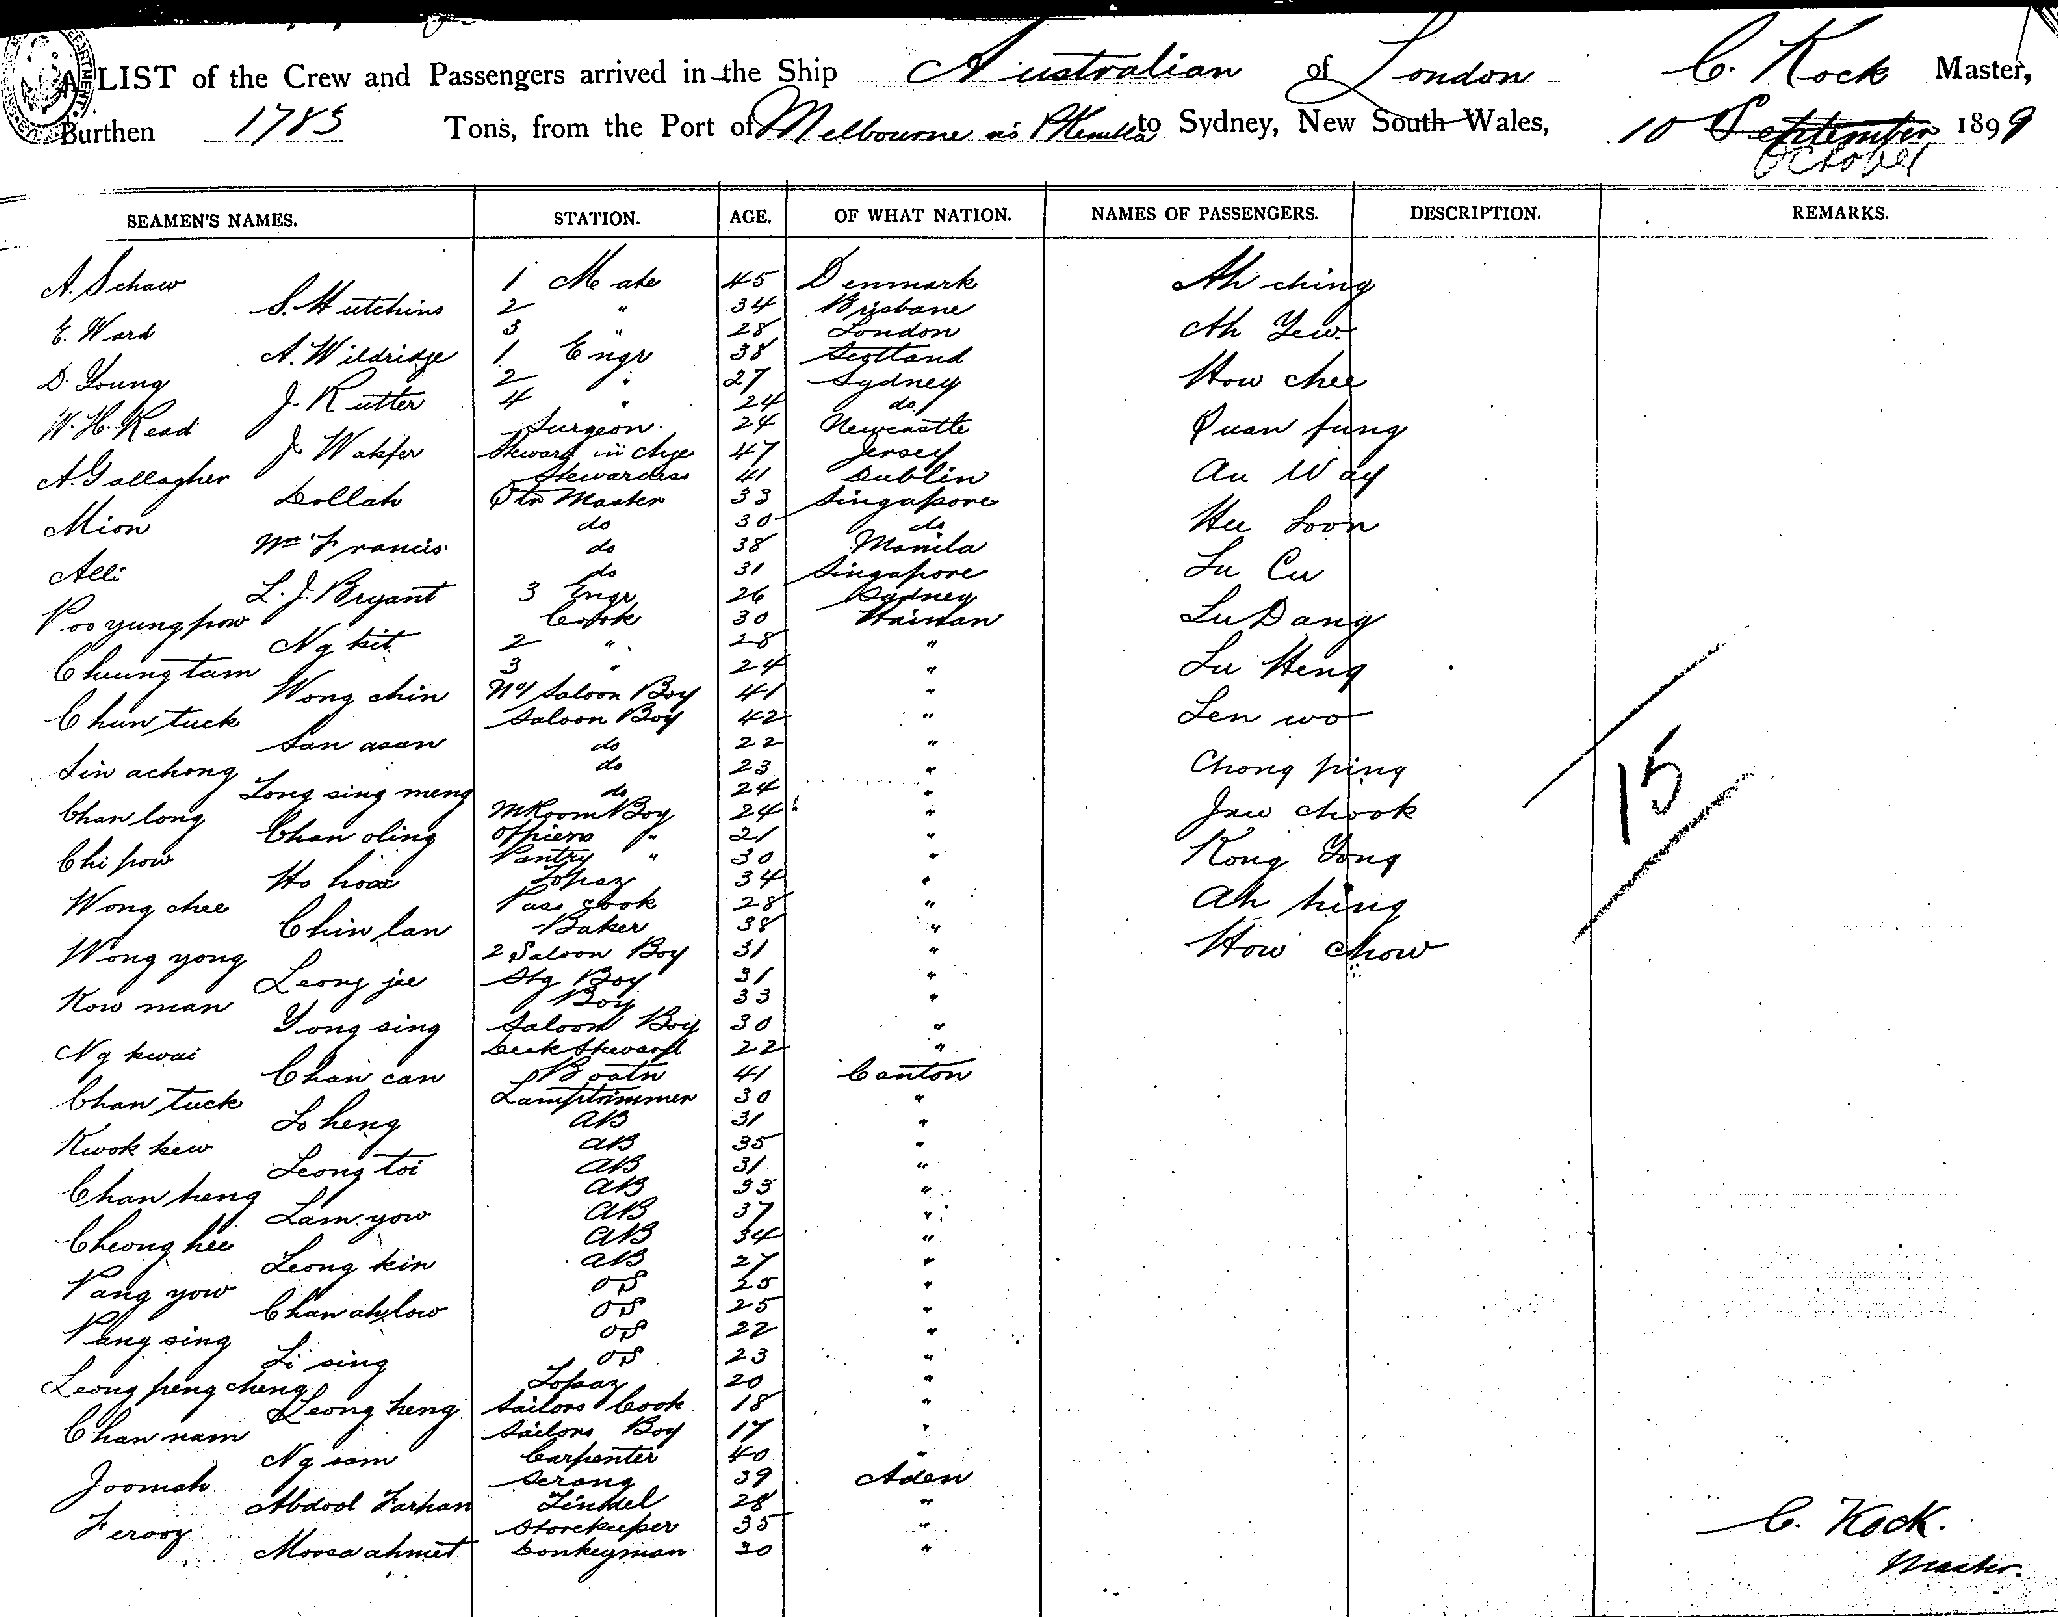 A LIST of the Crew and Passengers arrived in the Ship Australian of London C. Kock Master,
Burthen 1783 Tons, from the Port of Melbourne via P Kembla to Sydney, New South Wales, 10 September 1899
October
SEAMEN'S NAMES. STATION. AGE. OF WHAT NATION. NAMES OF PASSENGERS. DESCRIPTION. REMARKS.
A. Schaw 1 Mate 45 Denmark Ah ching
S. Hutchins 2 " 34 Brisbane
E. Ward 3 " 28 London Ah Yew
A. Wildridge 1 Engr 38 Scotland
D. Young 2 " 27 Sydney How chee
J. Rutter 4 " 24 do
W. H. Read Surgeon 24 Newcastle Quan fung
J. Wakfer Steward in chge 47 Jersey
A. Gallagher Stewardess 41 Dublin Au Way
Dollah Qtr Master 33 Singapore
Mion do 30 do Hee Soon
Wm Francis do 38 Manila
Alli do 31 Singapore Lu Cu
L. J. Bryant 3 Engr 26 Sydney
Poo yung pow Cook 30 Hainan Lu Dang
Ng kit 2 " 28 "
Cheung tam 3 " 24 " Lu Heng
Wong chin No1 Saloon Boy 41 "
Chun tuck Saloon Boy 42 " Len wo
San asan do 22 "
Sin achong do 23 " Chong ping
Long sing meng do 24 "
Chan long M Room Boy 24 " Jaw chook
Chan oling officers " 21 "
Chi pow Pantry " 30 " Kong Yong
Ho hoai Topaz 34 "
Wong chee Pass cook 28 " Ah hing
Chin lan Baker 38 "
Wong yong 2 Saloon Boy 31 " How chow
Leong jee Stg Boy 31 "
Kow man Boy 33 "
Yong sing Saloon Boy 30 "
Ng kwai Deck Steward 22 "
Chan can Boatn 41 Canton
Chan tuck Lamptrimmer 30 "
Lo heng AB 31 "
Kwok kew AB 35 "
Leong toi AB 31 "
Chan heng AB 33 "
Lam yow AB 37 "
Cheong hee AB 34 "
Leong kin AB 27 "
Pang yow OS 25 "
Chan ah low OS 25 "
Pang sing OS 22 "
Li sing OS 23 "
Leong peng cheng Topaz 20 "
Leong heng Sailors Cook 18 "
Chan nam Sailors Boy 17 "
Ng sam Carpenter 40 "
Joomah Serang 39 Aden
Abdool Farhan Tindel 28 "
Ferooz Storekeeper 35 "
Moosa ahmet Donkeyman 30 "
15
C. Kock.
Master.